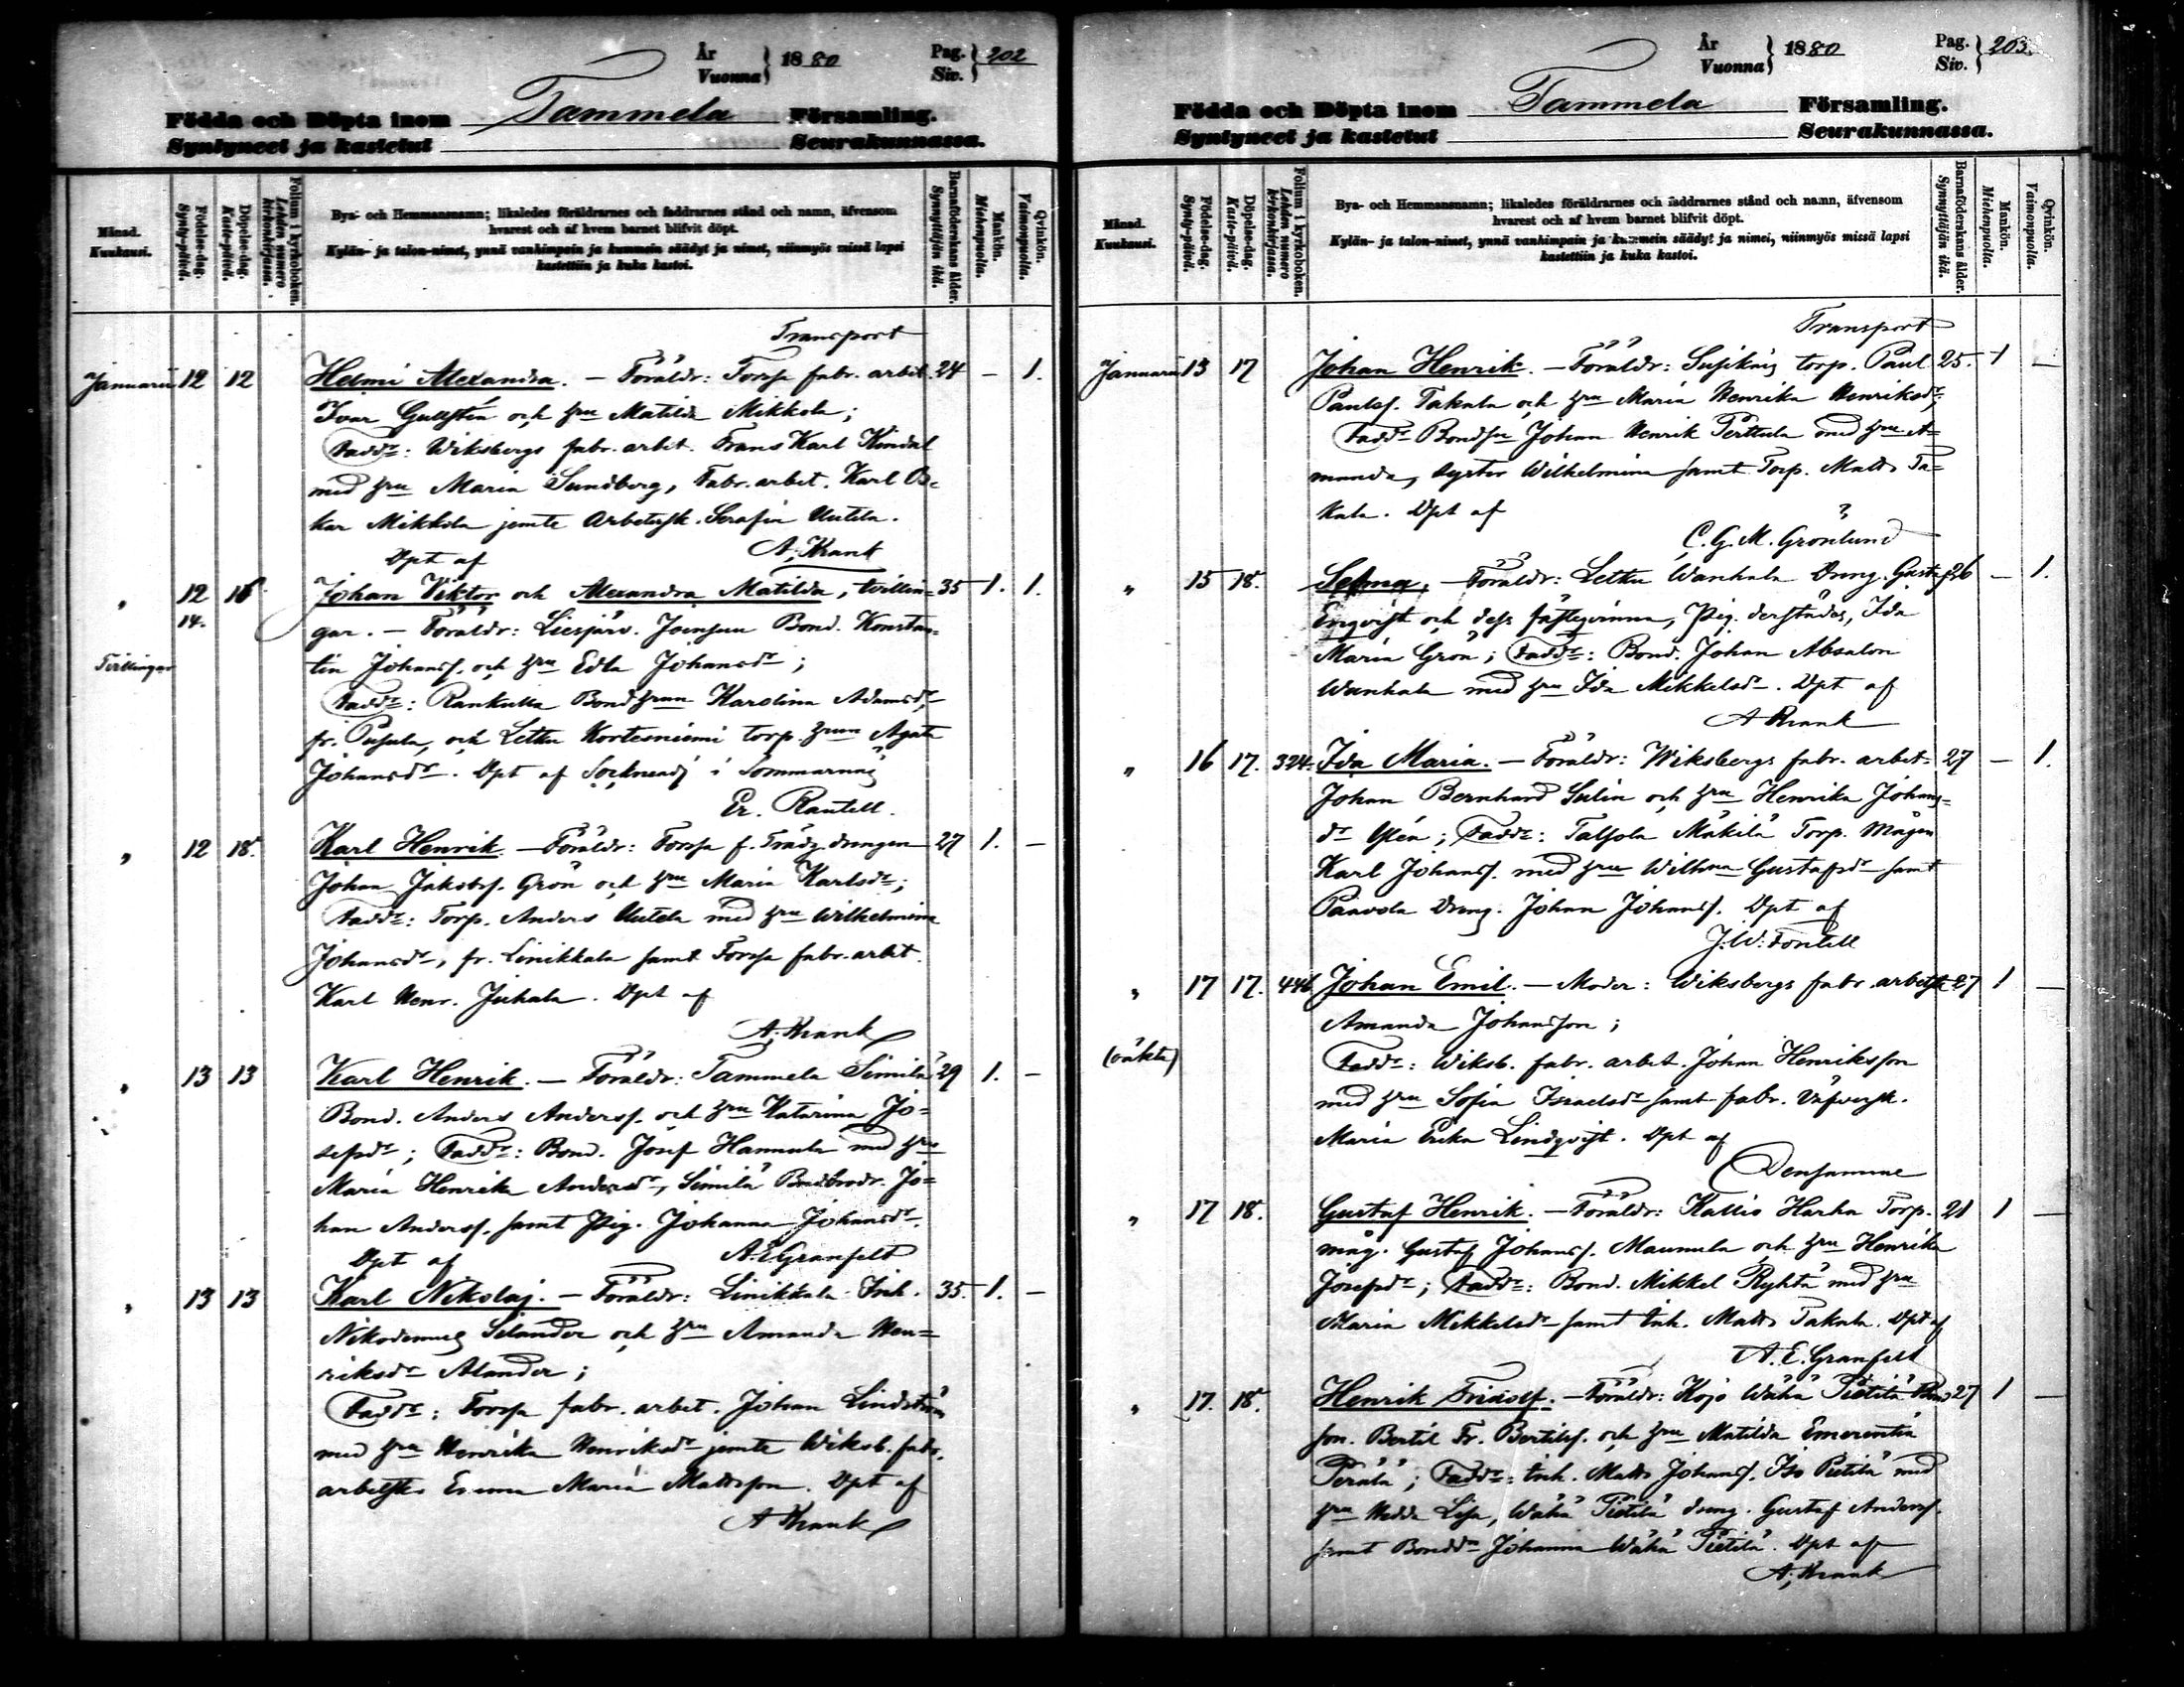 År
Vuonna } 1880
Pag.
Siv. } 202
Födda och Döpta inom Tammela Församling.
Syntyneet ja kastetut Seurakunnassa.
Månad.
Kuukausi.
Födelse-dag.
Synty-päivä.
Döpelse-dag.
Kaste-päivä.
Folium i kyrkoboken.
Lehden numero kirkonkirjassa.
Bya- och Hemmansnamn; likaledes föräldrarnes och faddrarnes stånd och namn, äfvensom
hvarest och af hvem barnet blifvit döpt.
Kylän- ja talon-nimet, ynnä vanhimpain ja kummein säädyt ja nimet, niinmyös missä lapsi
kastettiin ja kuka kastoi.
Barnaföderskans ålder.
Synnyttäjän ikä.
Mankön.
Miehenpuolta.
Qvinkön.
Vaimonpuolta.
Transport
Januarii 12 12 Helmi Alexandra. — Föräldr: Forssa fabr. arbet. 24 — 1.
Ivar Gullstén och hru Matilda Mikkola;
Faddr: Wiksbergs fabr. arbet. Frans Karl Kindal
med hru Maria Sundberg, Fabr. arbet. Karl Os-
kar Mikkola jemte Arbetersk. Serafia Uutela.
Dpt af A. Krank
" 12 16 Johan Viktor och Alexandra Matilda, tvillin- 35 1. 1.
14.
gar. — Föräldr: Liesjärv. Joensuu Bond. Konstan-
Tvillingar
tin Johanss. och hru Edla Johansdr;
Faddr: Rankulla Bond hrun Karolina Adamsdr,
fr. Pusula, och Letku Kortesniemi torp. hrun Agata
Johansdr. Dpt af Sockneadj i Sommarnäs
Er. Rantell.
" 12 18. Karl Henrik. — Föräldr: Forssa f. Trädg. drängen 27 1. —
Johan Jakobss. Grön och hru Maria Karlsdr;
Faddr: Torp. Anders Uutela med hru Wilhelmina
Johansdr, fr. Linikkala samt Forssa fabr. arbet.
Karl Henr. Juhala. Dpt af
A. Krank
" 13 13 Karl Henrik. — Föräldr: Tammela Simila 29 1. —
Bond. Anders Anderss. och hru Katarina Jo-
sefsdr; Faddr: Bond. Josef Hannula med hru
Maria Henrika Andersdr, Similä Bondbrodr. Jo-
han Anderss. samt Pig. Johanna Johansdr.
Dpt af A. E. Granfelt
" 13 13 Karl Nikolaj. — Föräldr: Linikkala Inh. 35. 1. —
Nikodemus Selander och hru Amanda Hen-
riksdr Alander;
Faddr: Forssa fabr. arbet. Johan Lindström
med hru Henrika Henriksdr jemte Wiksb. fabr.
arbetsk. Emma Maria Mattsson. Dpt af
A Krank
År
Vuonna } 1880
Pag.
Siv. } 203.
Födda och Döpta inom Tammela Församling.
Syntyneet ja kastetut Seurakunnassa.
Månad.
Kuukausi.
Födelse-dag.
Synty-päivä.
Döpelse-dag.
Kaste-päivä.
Folium i kyrkoboken.
Lehden numero kirkonkirjassa.
Bya- och Hemmansnamn; likaledes föräldrarnes och faddrarnes stånd och namn, äfvensom
hvarest och af hvem barnet blifvit döpt.
Kylän- ja talon-nimet, ynnä vanhimpain ja kummein säädyt ja nimei, niinmyös missä lapsi
kastettiin ja kuka kastoi.
Barnaföderskans ålder.
Synnyttäjän ikä.
Mankön.
Miehenpuolta.
Qvinkön.
Vaimonpuolta.
Transport
Januarii 13 17 Johan Henrik. — Föräldr: Susikas torp. Paul 25. 1 —
Paulss. Takala och hru Maria Henrika Henriksdr;
Faddr Bondsn Johan Henrik Perttula med hru A-
manda, syster Wilhelmina samt Torp. Matts Ta-
kala. Dpt af
C. G. M. Grönlund
" 15 18. Selma. — Föräldr: Letku Wanhala Dräng. Gustaf 26 — 1.
Enqvist och dess fästeqvinna, Pig. derstädes, Ida
Maria Grön; Faddr: Bond. Johan Absalon
Wanhala med hru Ida Mikkelsdr. Dpt af
A Krank
" 16 17. 324. Ida Maria. — Föräldr: Wiksbergs fabr. arbet. 27 — 1.
Johan Bernhard Sulin och hru Henrika Johans-
dr ; Faddr: Talsola Mäkilä Torp. mågen
Karl Johanss. med hru Wilhma Gustafsdr samt
Paavola Dräng. Johan Johanss. Dpt af
J. W. Fontell
" 17 17. 446 Johan Emil. — Moder: Wiksbergs fabr. arbetsk. 27 1 —
Amanda Johansson;
(oäkta)
Faddr: Wiksb. fabr. arbet. Johan Henriksson
med hru Sofia Israelsdr samt fabr. Väfversk.
Maria Erika Lindqvist. Dpt af
Densamme
" 17 18. Gustaf Henrik. — Föräldr: Kallio Harha Torp. 21 1 —
måg. Gustaf Johanss. Maunula och hru Henrika
Josefsdr; Faddr: Bond. Mikkel Ryhtä med hru
Maria Mikkelsdr samt Inh. Matts Takala. Dpt af
A. E. Granfelt
" 17. 18. Henrik Fridolf. — Föräldr: Kojo Wähä Pietilä Bond 27 1 —
son. Bertil Fr. Bertilss. och hru Matilda Emerentia
Perälä; Faddr: Inh. Matts Johanss. Iso Pietilä med
hru Hedda Lisa, Wähä Pietilä dräng. Gustaf Anderss.
samt Bonddr Johanna Wähä Pietilä. Dpt af
A. Krank